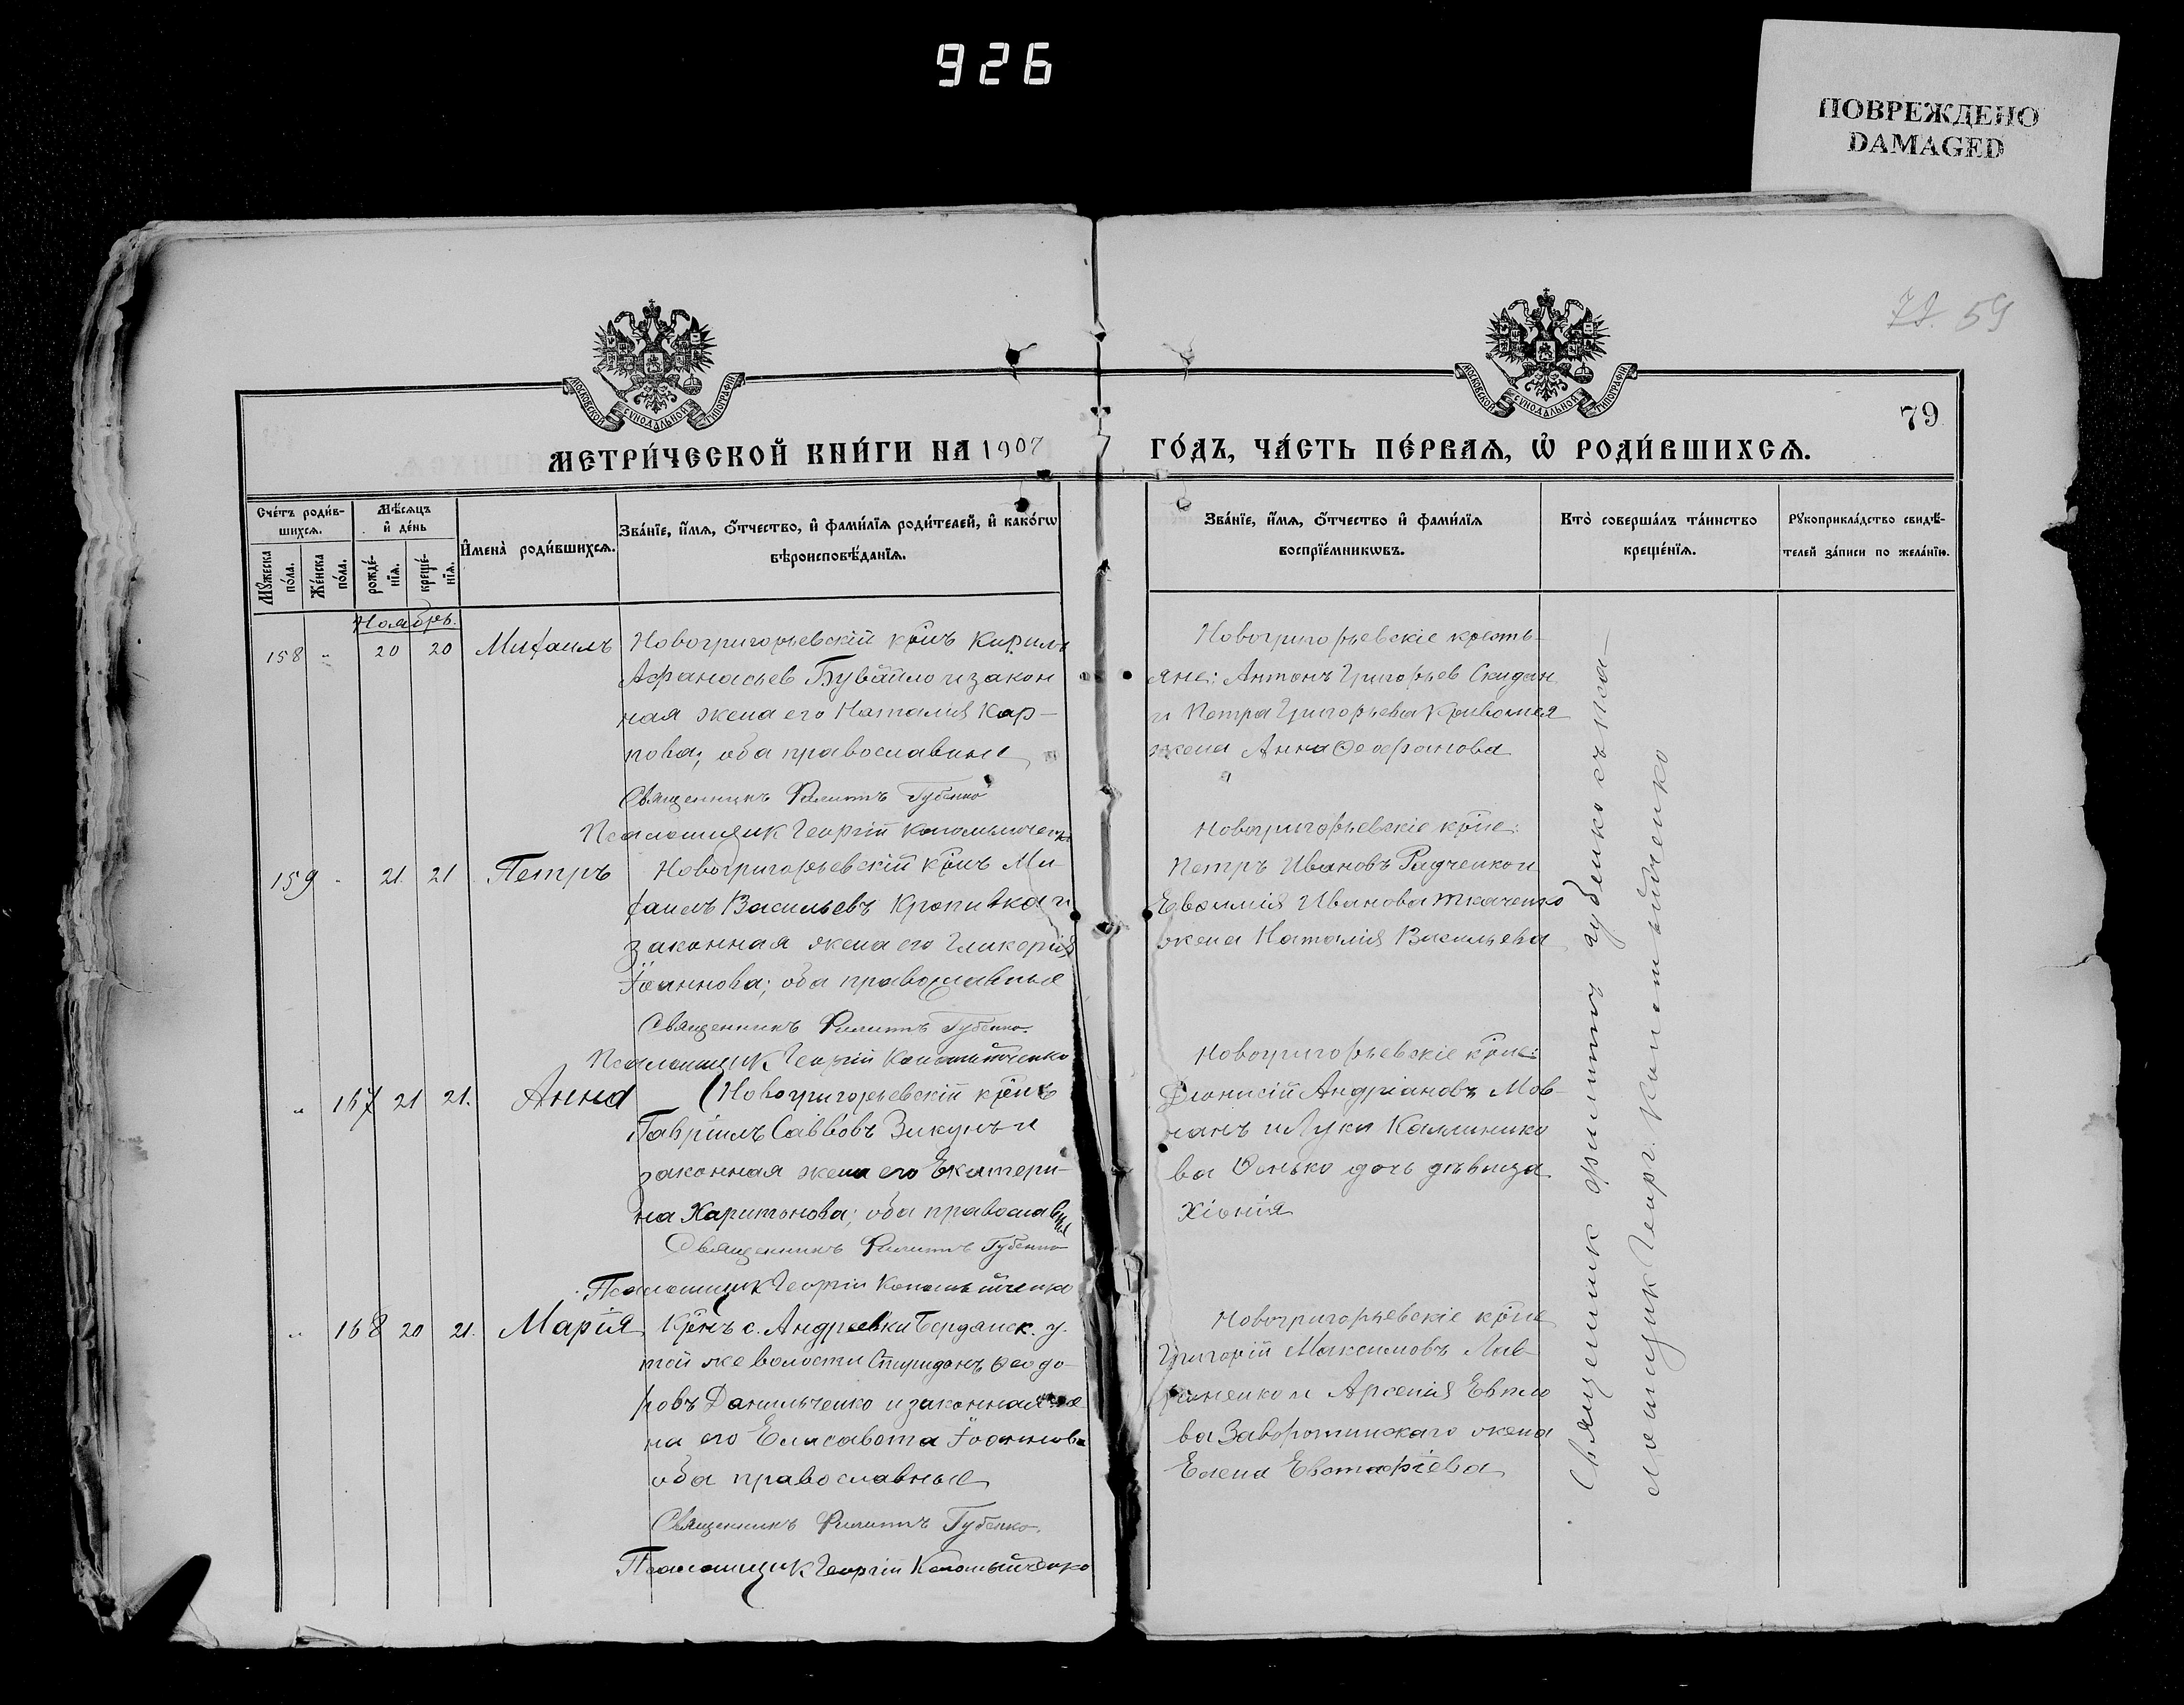 926
ПОВРЕЖДЕНО
DAMAGED
59
79
МОСКОВСКОЙ СѴНОДАЛЬНОЙ ТИПОГРАФІИ
МОСКОВСКОЙ СѴНОДАЛЬНОЙ ТИПОГРАФІИ
МЕТРИ́ЧЕСКОЙ КНИ́ГИ НА 1907 ГО́ДЪ, ЧА́СТЬ ПЕ́РВАѦ, Ѡ҆ РОДИ́ВШИХСѦ.
Сче́тъ роди́в-
шихсѧ.
Мꙋ́жеска
по́ла.
Же́нска
по́ла.
Мѣ́сѧцъ
и҆ де́нь
рожде́-
нїѧ.
креще́-
нїѧ.
И҆мена̀ роди́вшихсѧ.
Зва́нїе, и҆́мѧ, ѻ҆́тчество, и҆ фами́лїѧ роди́телей, и҆ како́гѡ
вѣроисповѣ́данїѧ.
Зва́нїе, и҆́мѧ, ѻ҆́тчество и҆ фами́лїѧ
воспрїе́мникѡвъ.
Кто̀ соверша́лъ та́инство
креще́нїѧ.
Рꙋкоприкла́дство свидѣ́-
телей за́писи по жела́нїю.
Ноябрь.
158 " 20 20 Михаилъ
Новогригорьевскій крнъ Кирилъ
Афанасьев Бувайло и закон
ная жена его Наталія Кар-
пова; оба православные
Священникъ Филиппъ Губенко
Псаломщик Георгій Коломыйченко
Новогригорьевскіе кресть-
яне: Антонъ Григорьев Скидан
и Петра Григорьева Кривошея
жена Анна Ѳеофанова
159 " 21 21 Петръ
Новогригорьевскій крнъ Ми-
хаилъ Васильевъ Кропивка и
законная жена его Гликерія
Іоаннова; оба православные
Священникъ Филиппъ Губенко.
Псаломщик Георгій Коломыйченко
Новогригорьевскіе крне:
Петръ Ивановъ Радченко и
Евѳимія Иванова Ткаченко
жена Наталія Васильева
" 167 21 21. Анна
Новогригорьевскій крнъ
Гавріилъ Саввовъ Зикунъ и
законная жена его Екатери-
на Харитонова; оба православные
Священникъ Филиппъ Губенко
Псаломщик Георгій Коломыйченко
Новогригорьевскіе крне:
Діонисій Андріановъ Мов-
чанъ и Луки Каллинико
ва Сенько дочь дѣвица
Хіонія
" 168 20 21. Марія
Крнъ с. Андреевки Бердянск. у.
той же волости Спиридонъ Ѳеодо-
ровъ Данильченко и законная же
на его Елисавета Іоаннова
оба православные
Священникъ Филиппъ Губенко.
Псаломщик Георгій Коломыйченко
Новогригорьевскіе крне
Григорій Максимовъ Лав-
риненко и Арсенія Евтихо
ва Заворотинскаго жена
Елена Евстафіева
Священник Филиппъ Губенко съ пса-
ломщик Георг. Коломыйченко